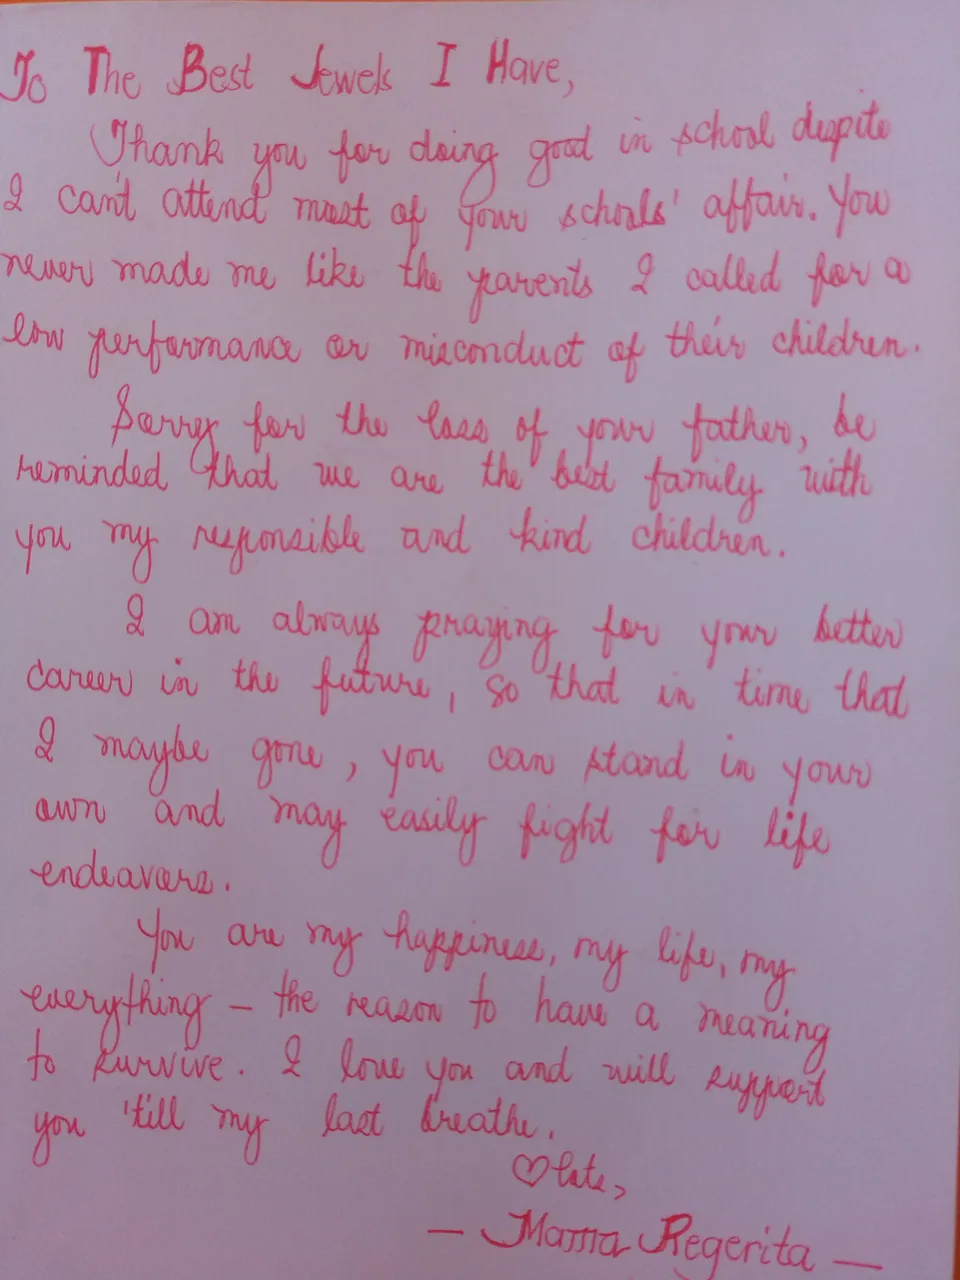 To The Best Jewels I Have,
Thank you for doing good in school despite
I can't attend most of your schools' affair. You
never made me like the parents I called for a
low performance or misconduct of their children.
Sorry for the loss of your father, be
reminded that we are the best family with
you my responsible and kind children.
I am always praying for your better
career in the future, so that in time that
I maybe gone, you can stand in your
own and may easily fight for life
endeavors.
You are my happiness, my life, my
everything – the reason to have a meaning
to survive. I love you and will support
you 'till my last breathe.
♡lots,
— Mama Regerita —